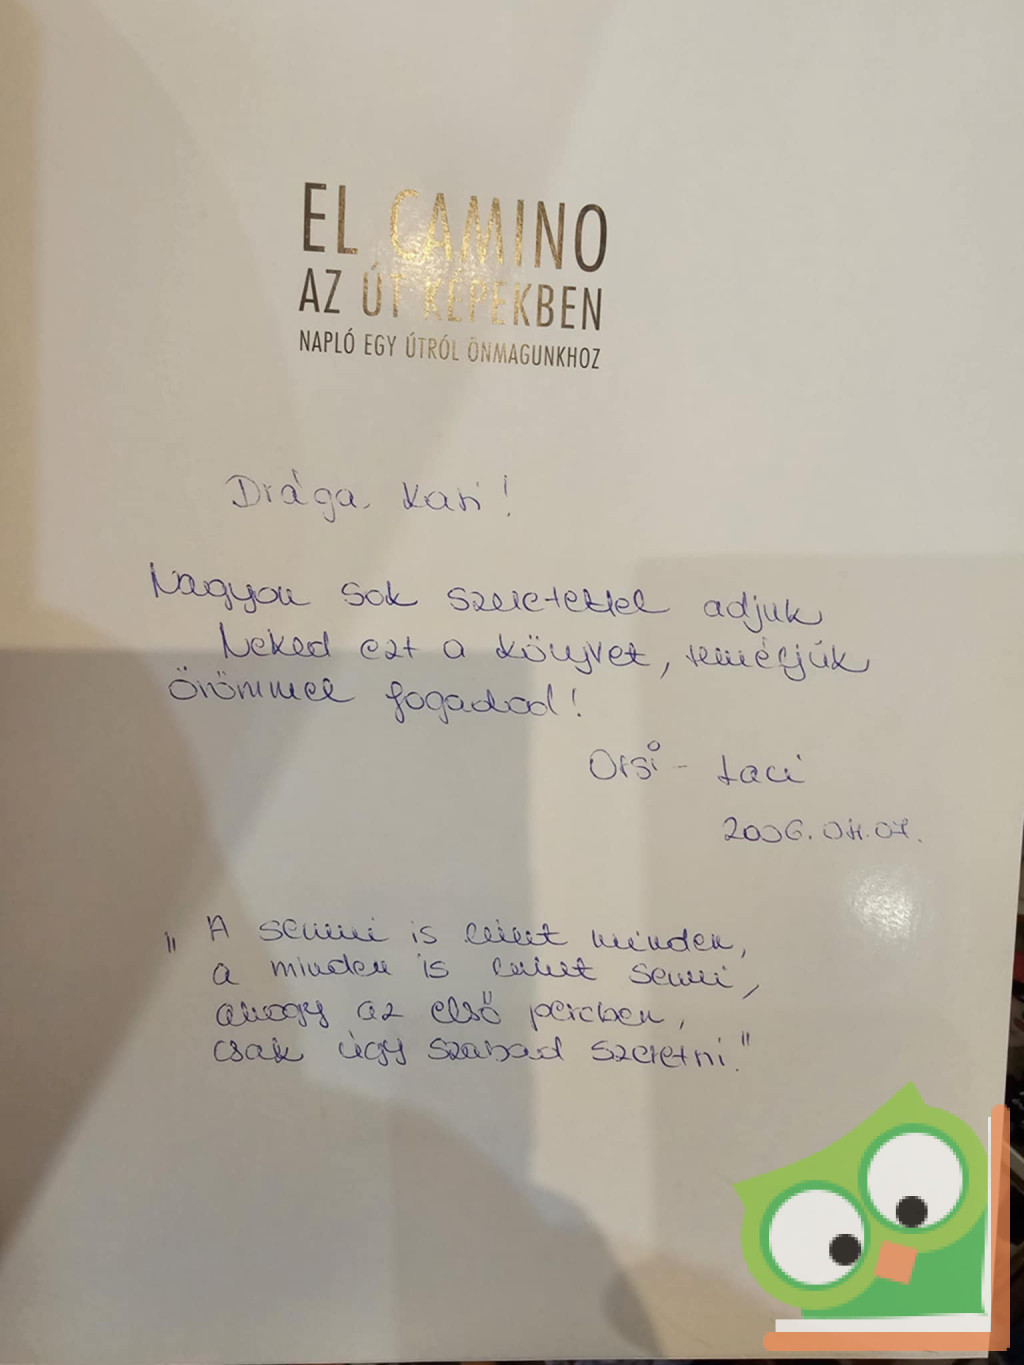 EL CAMINO
AZ ÚT KÉPEKBEN
NAPLÓ EGY ÚTRÓL ÖNMAGUNKHOZ
Drága Kati!
Nagyon sok szeretettel adjuk
Neked ezt a könyvet, reméljük
örömmel fogadod!
Orsi - Laci
2006. 04. 07.
"A semmi is lehet minden,
a minden is lehet semmi,
ahogy az első percben,
csak úgy szabad szeretni."